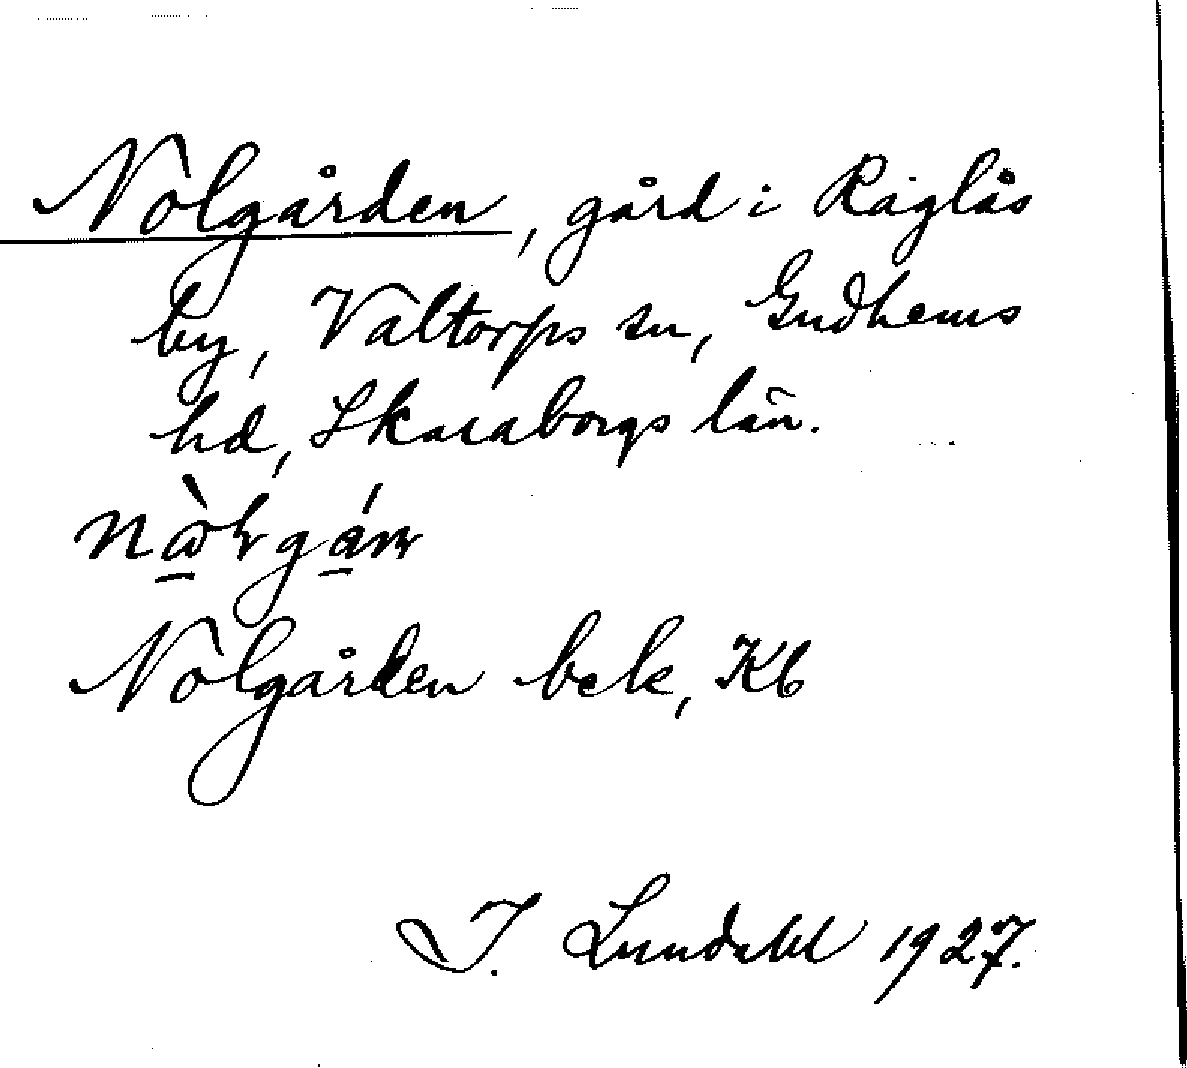 Nolgården, gård i Raglås
by, Valtorps sn, Gudhems
hd, Skaraborgs län.
Nolgården bek, Kb
I. Lundahl 1927.